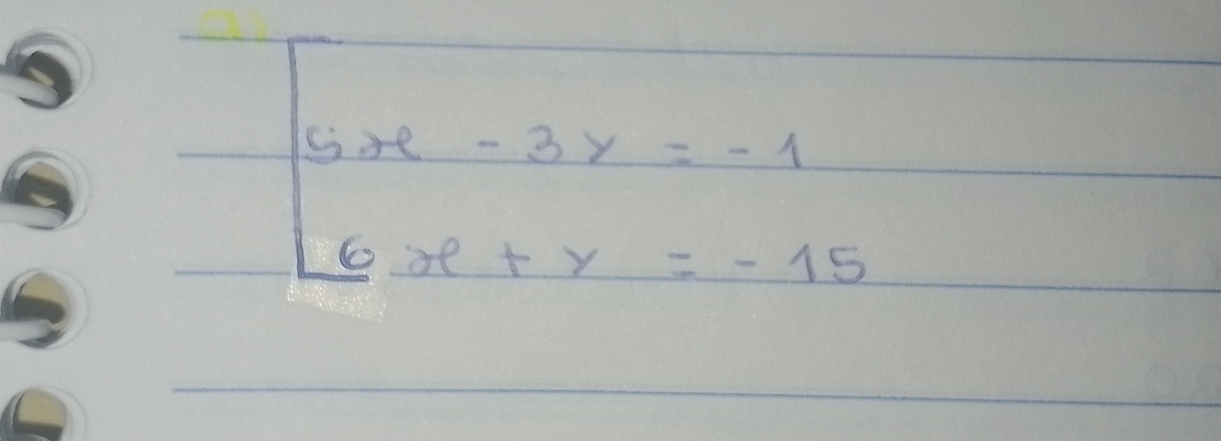 a)
5x - 3y = -1
6x + y = -15